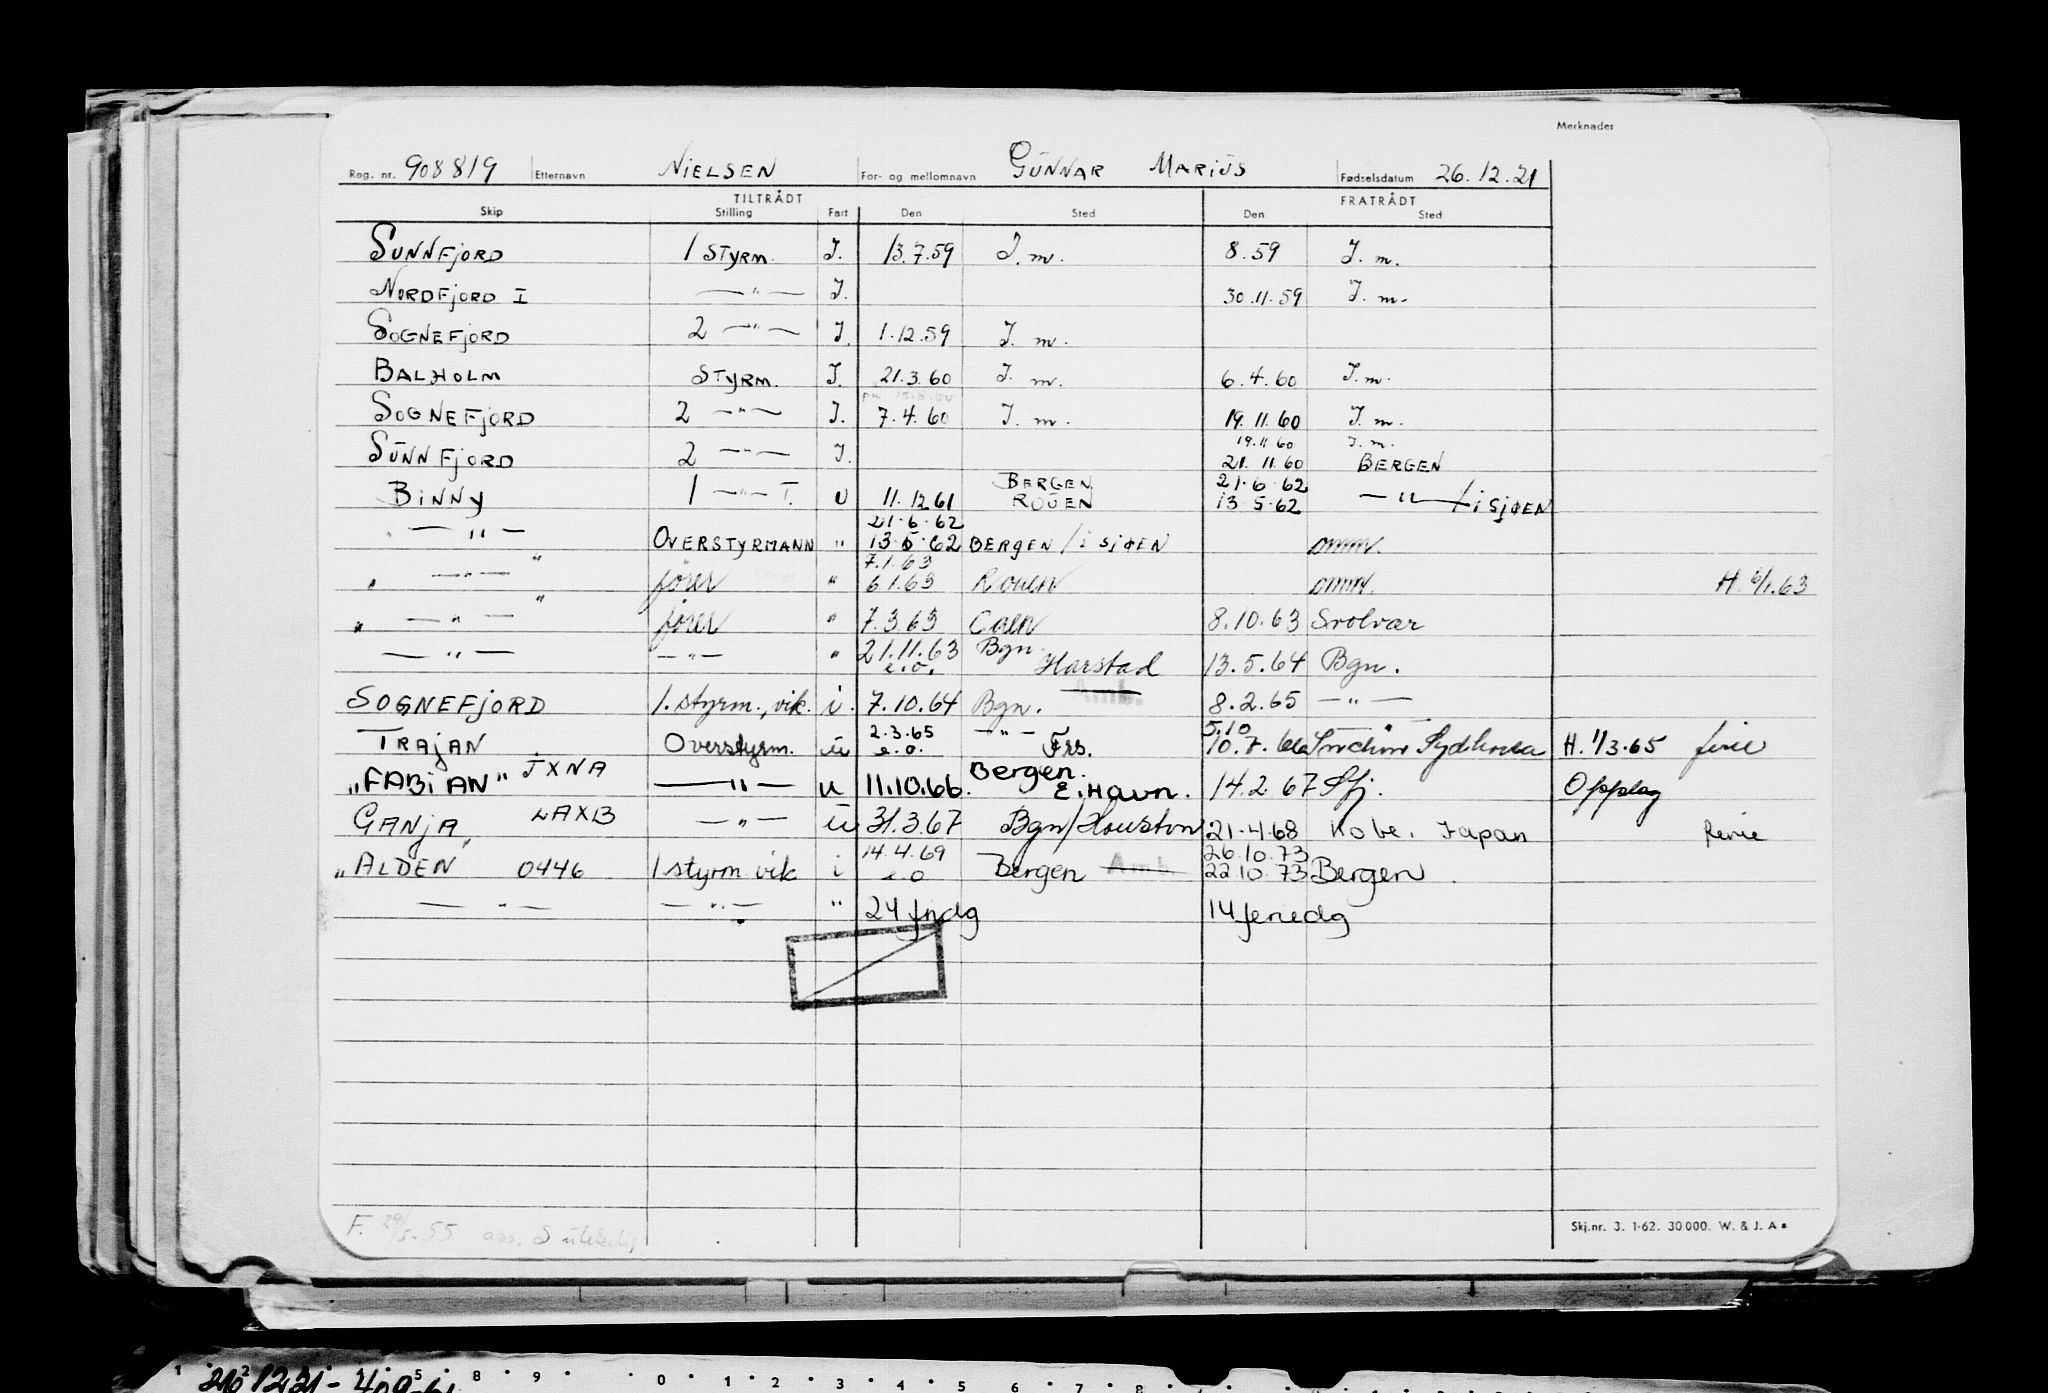 Merknader
Reg. nr. 908819 Etternavn NIELSEN For- og mellomnavn GUNNAR MARIUS Fødselsdatum 26.12.21
TILTRÅDT FRATRÅDT
Skip Stilling Fart Den Sted Den Sted
SUNNFJORD 1 STYRM. J. 13.7.59 J. m. 8.59 J. m.
NORDFJORD I —"— J. 30.11.59 J. m.
SOGNEFJORD 2 —"— J. 1.12.59 J. m.
BALHOLM STYRM. J. 21.3.60 J. m. 6.4.60 J. m.
SOGNEFJORD 2 —"— J. 7.4.60 J. m. 19.11.60 J. m.
19.11.60 J. m.
SUNNFJORD 2 —"— J. 21.11.60 BERGEN
BERGEN 21.6.62
BINNY 1 —"— T. U 11.12.61 ROUEN 13.5.62 —"—/i SJØEN
21.6.62
—"— OVERSTYRMANN " 13.5.62 BERGEN / i SJØEN omm.
7.1.63
" —"— " fører " 6.1.63 Rouen omm. H. 6/1.63
" —"— " fører " 7.3.63 Caen 8.10.63 Svolvær
—"— —"— " 21.11.63 Bgn.
e.o. Harstad 13.5.64 Bgn.
Amb.
SOGNEFJORD 1. styrm., vik. i. 7.10.64 Bgn. 8.2.65 —"—
2.3.65 —"— 5.10
TRAJAN Overstyrm. u e.o. Frs. 10.7.66 Inchon Sydkorea H. 1/3.65 ferie
Bergen.
"FABIAN" JXNA —"— u 11.10.66. E.Havn. 14.2 67 Sfj. Opplag
GANJA LAXB —"— u 31.3.67 Bgn/Houston 21.4.68 Kobe. Japan ferie
14.4.69 26.10.73
"ALDEN" 0446 1 styrm vik i e o Bergen Amb. 22.10.73 Bergen
—"— —"— " 24 frdg 14 feriedg
F. 29/5.55
Skj.nr. 3. 1-62. 30 000. W. & J. A